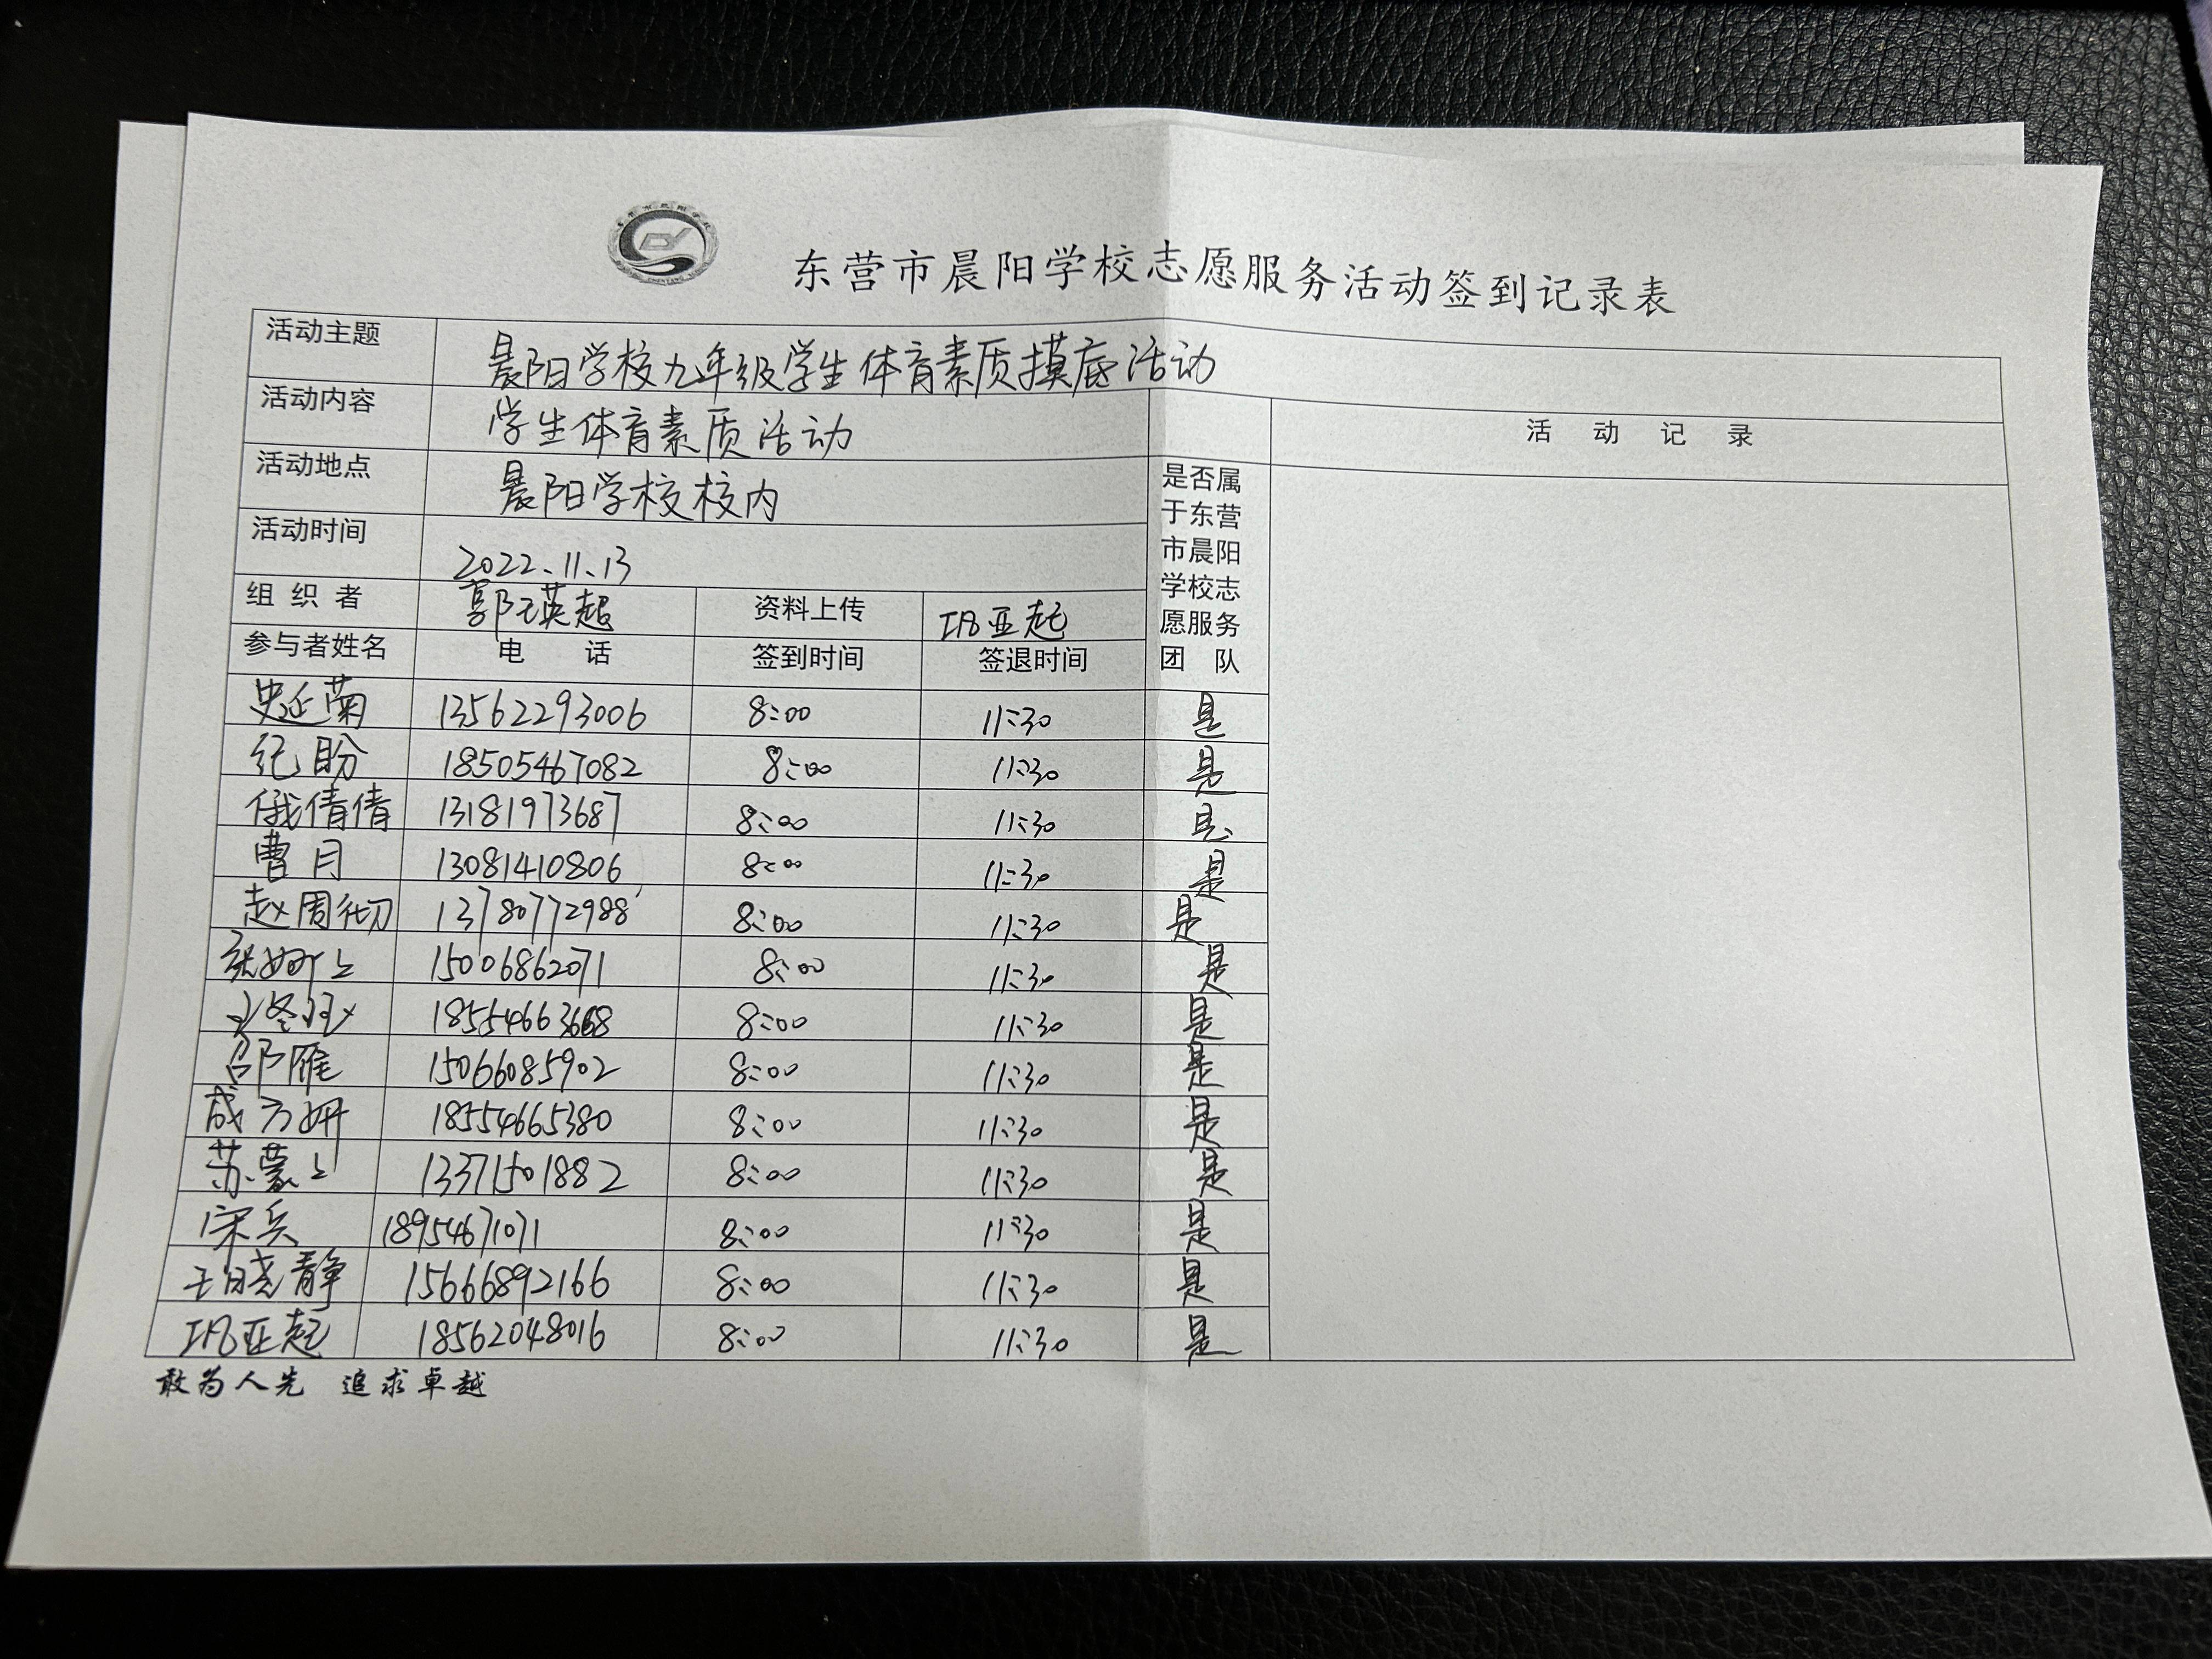 东营市晨阳学校志愿服务活动签到记录表
活动主题 晨阳学校九年级学生体育素质摸底活动
活动内容 学生体育素质活动
活动记录
活动地点 晨阳学校校内
活动时间 2022.11.13
是否属于东营市晨阳学校志愿服务团队
组织者 郭瑛超 资料上传 巩亚起
参与者姓名 电话 签到时间 签退时间
史延菊 13562293006 8:00 11:30 是
纪盼 18505467082 8:00 11:30 是
倩倩 13181973687 8:00 11:30 是
曹月 13081410806 8:00 11:30 是
赵周彻 13780772988 8:00 11:30 是
15006862071 8:00 11:30 是
18554663668 8:00 11:30 是
邵雁 15066085902 8:00 11:30 是
成方妍 18554665380 8:00 11:30 是
苏蒙 13371501882 8:00 11:30 是
宋兵 18954671071 8:00 11:30 是
王晓静 15666892166 8:00 11:30 是
巩亚起 18562048016 8:00 11:30 是
敢为人先 追求卓越